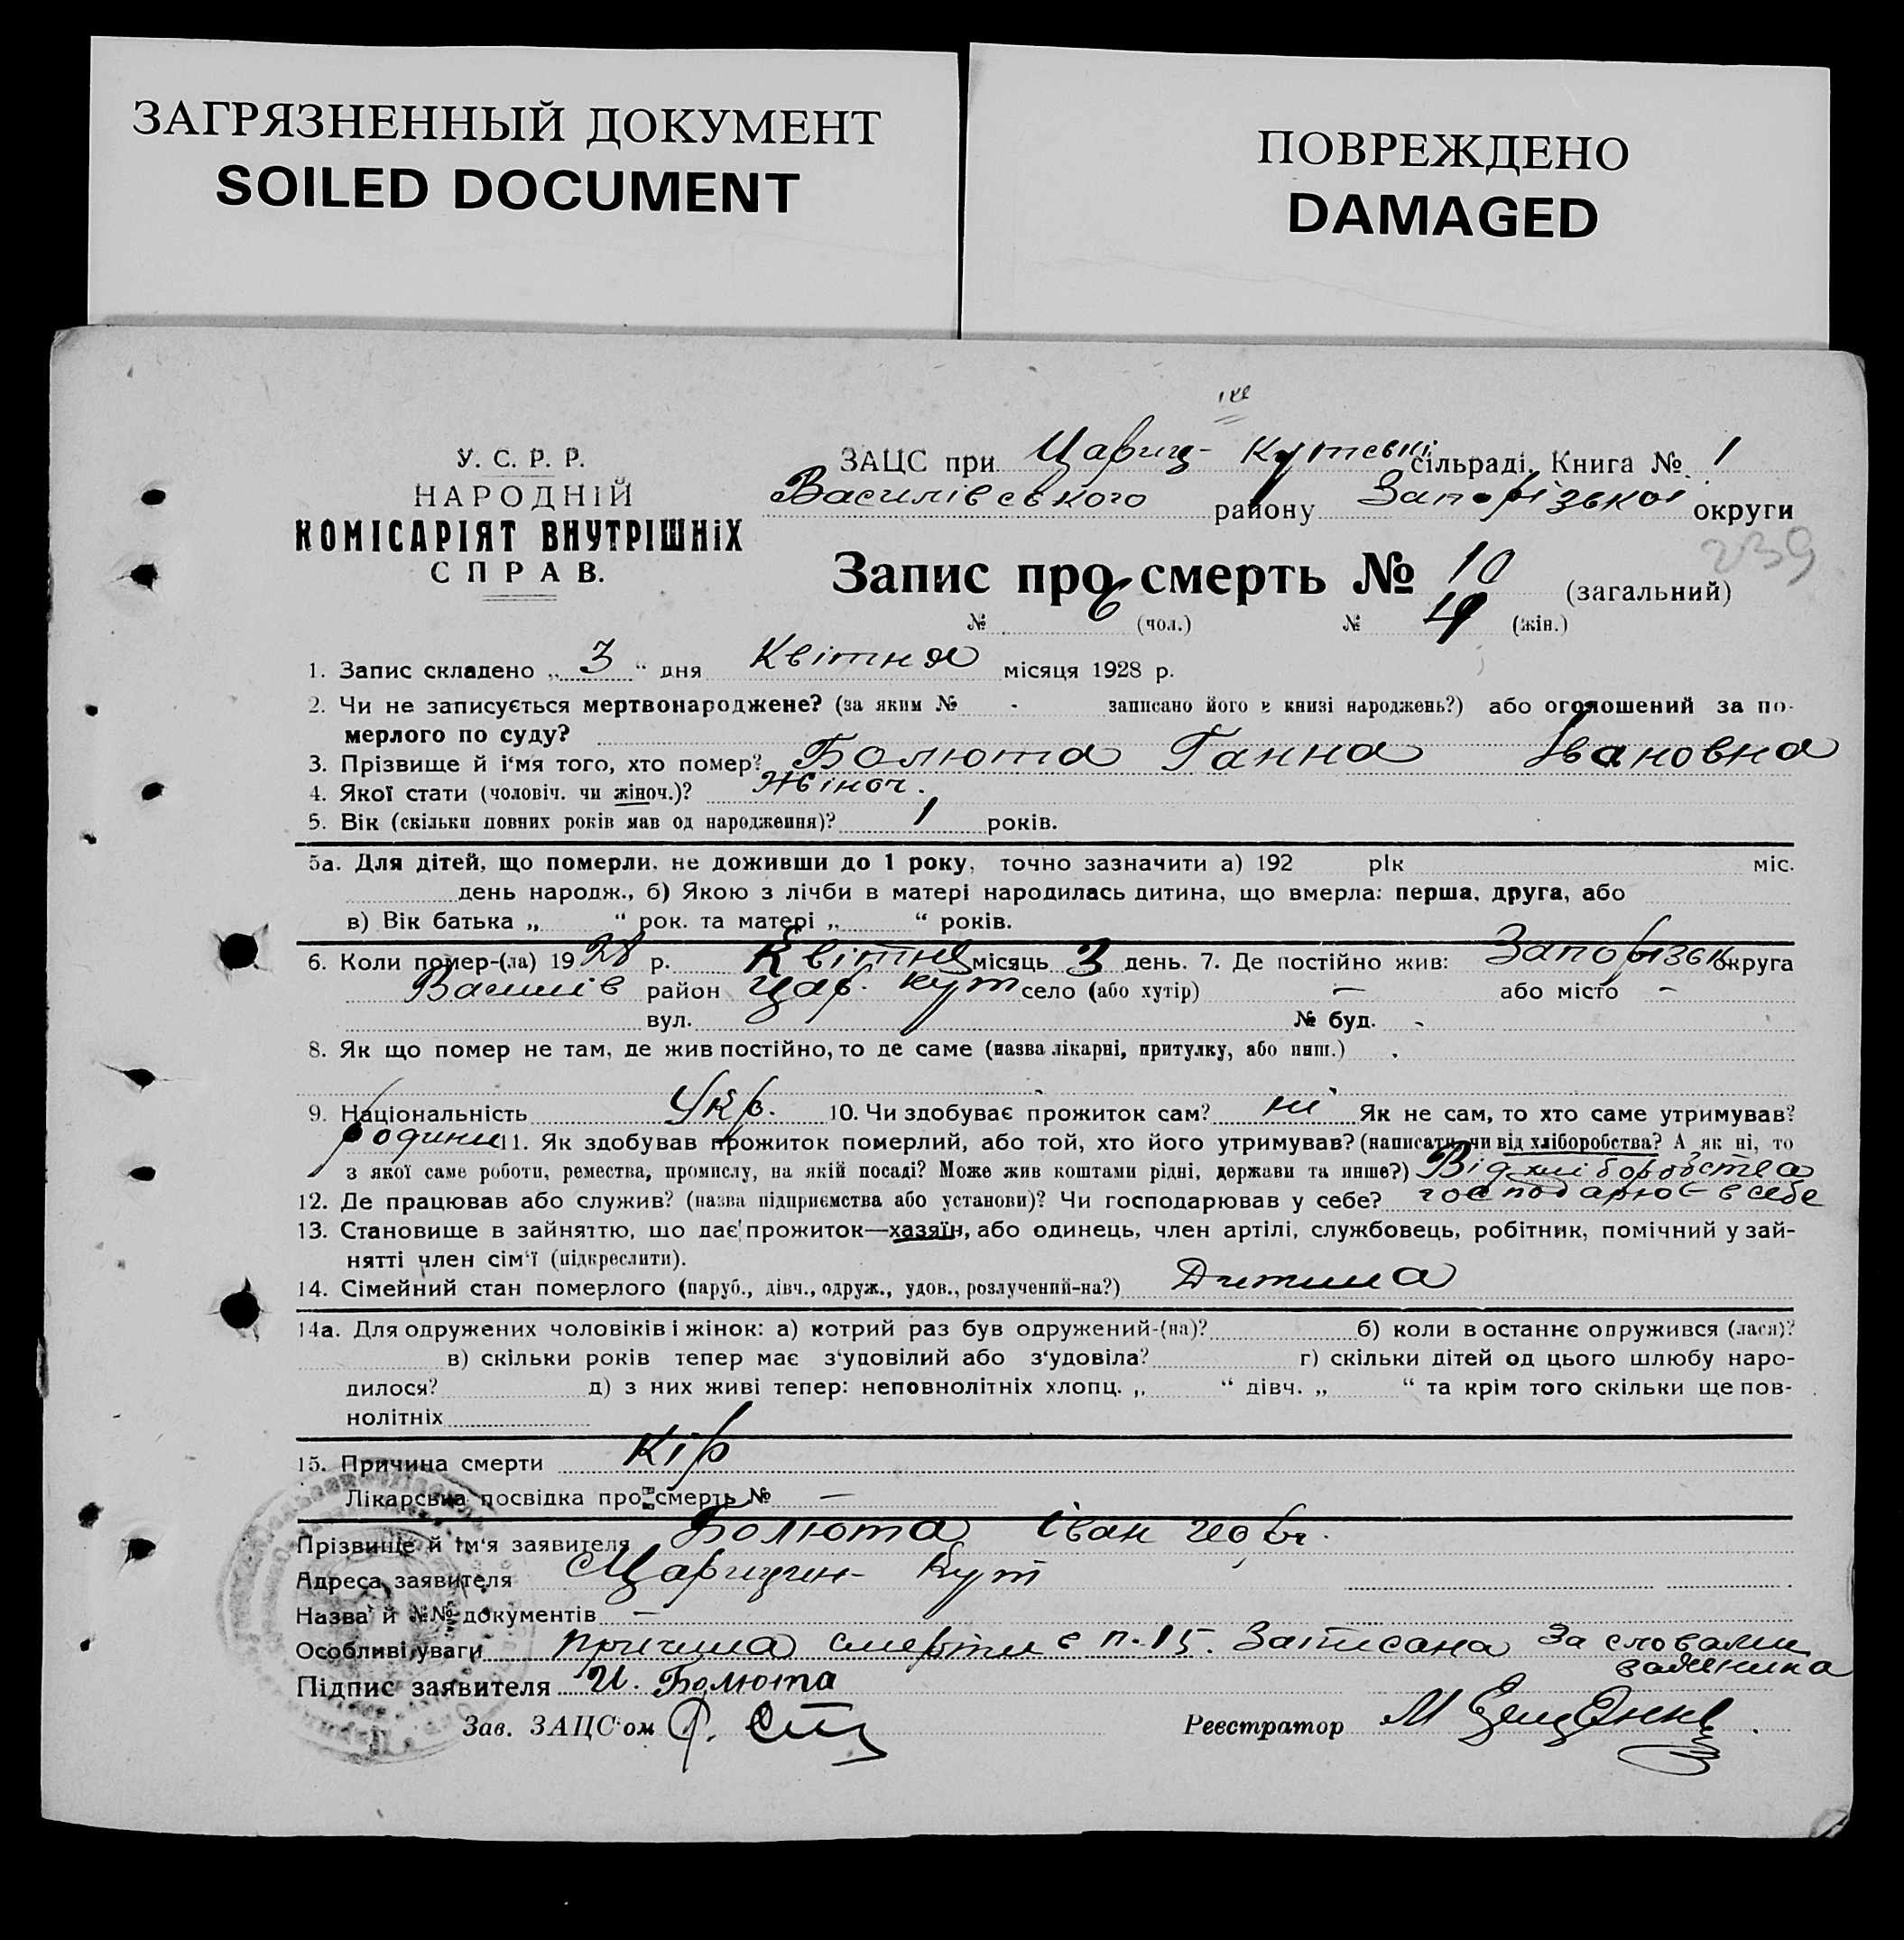 ЗАГРЯЗНЕННЫЙ ДОКУМЕНТ
SOILED DOCUMENT
ПОВРЕЖДЕНО
DAMAGED
У. С. Р. Р.
НАРОДНІЙ
КОМІСАРІЯТ ВНУТРІШНІХ
СПРАВ.
ЗАЦС при Цариц- Кутські сільраді, Книга № 1
Василівського району Запорізької округи
239
Запис про смерть № 10 (загальний)
№ 6 (чол.) № 4 (жін.)
1. Запис складено „ 3 “ дня Квітня місяця 1928 р.
2. Чи не записується мертвонароджене? (за яким № - записано його в книзі народжень?) або оголошений за по-
мерлого по суду?
3. Прізвище й і'мя того, хто помер? Болюта Ганна Івановна
4. Якої стати (чоловіч. чи жіноч.)? Жіноч.
5. Вік (скільки повних років мав од народження)? 1 років.
5а. Для дітей, що померли, не доживши до 1 року, точно зазначити а) 192 рік міс.
день народж., б) Якою з лічби в матері народилась дитина, що вмерла: перша, друга, або
в) Вік батька „ “ рок. та матері „ “ років.
6. Коли помер-(ла) 1928 р. Квітня місяць 3 день. 7. Де постійно жив: Запорізьк округа
Василів район Цар. Кут село (або хутір) — або місто -
вул. № буд. -
8. Як що помер не там, де жив постійно, то де саме (назва лікарні, притулку, або инш.)
9. Національність Укр. 10. Чи здобуває прожиток сам? ні Як не сам, то хто саме утримував?
родини 11. Як здобував прожиток померлий, або той, хто його утримував? (написати, чи від хліборобства? А як ні, то
з якої саме роботи, ремества, промислу, на якій посаді? Може жив коштами рідні, держави та инше?) Від хліборобства
12. Де працював або служив? (назва підприємства або установи)? Чи господарював у себе? господарює в себе
13. Становище в зайняттю, що дає прожиток—хазяїн, або одинець, член артілі, службовець, робітник, помічний у зай-
нятті член сім'ї (підкреслити).
14. Сімейний стан померлого (паруб., дівч., одруж., удов., розлучений-на?) Дитина
14а. Для одружених чоловіків і жінок: а) котрий раз був одружений-(на)? б) коли в останнє опружився (лася)?
в) скільки років тепер має з'удовілий або з'удовіла? г) скільки дітей од цього шлюбу наро-
дилося? д) з них живі тепер: неповнолітніх хлопц. „ “ дівч. „ “ та крім того скільки ще пов-
нолітніх
15. Причина смерти Кір
Лікарська посвідка про смерть № —
Прізвище й ім'я заявителя Болюта Іван
Адреса заявителя Царицин- Кут
Назва й №№ документів —
Особливі уваги Причина смерти в п. 15. Записана За словами
Підпис заявителя И. Болюта
Зав. ЗАЦС'ом Реєстратор М